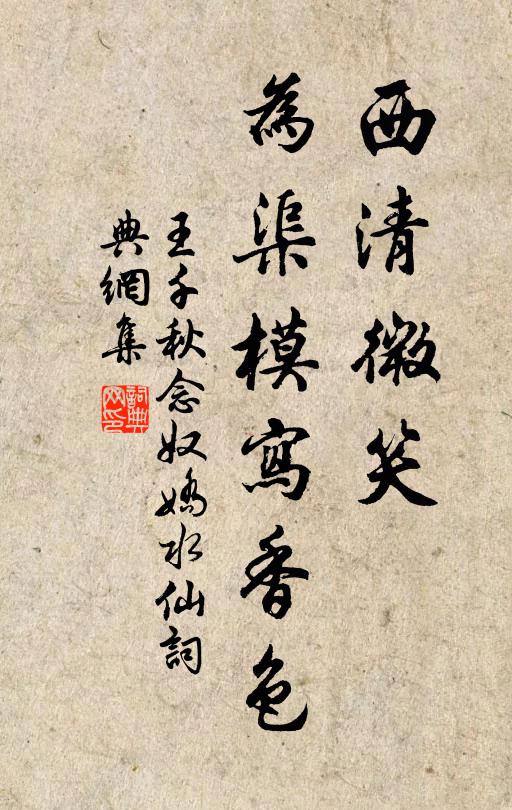 西清微笑
為渠模寫香色
王千秋念奴嬌水仙詞
典網集
詞典
网印